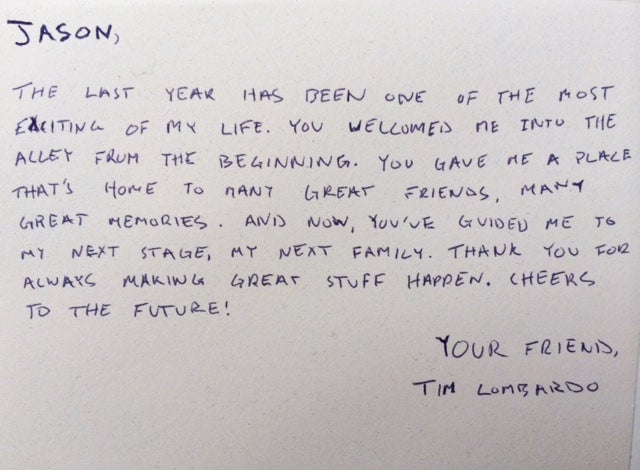 JASON,
THE LAST YEAR HAS BEEN ONE OF THE MOST
EXCITING OF MY LIFE. YOU WELCOMED ME INTO THE
ALLEY FROM THE BEGINNING. YOU GAVE ME A PLACE
THAT'S HOME TO MANY GREAT FRIENDS, MANY
GREAT MEMORIES. AND NOW, YOU'VE GUIDED ME TO
MY NEXT STAGE, MY NEXT FAMILY. THANK YOU FOR
ALWAYS MAKING GREAT STUFF HAPPEN. CHEERS
TO THE FUTURE!
YOUR FRIEND,
TIM LOMBARDO